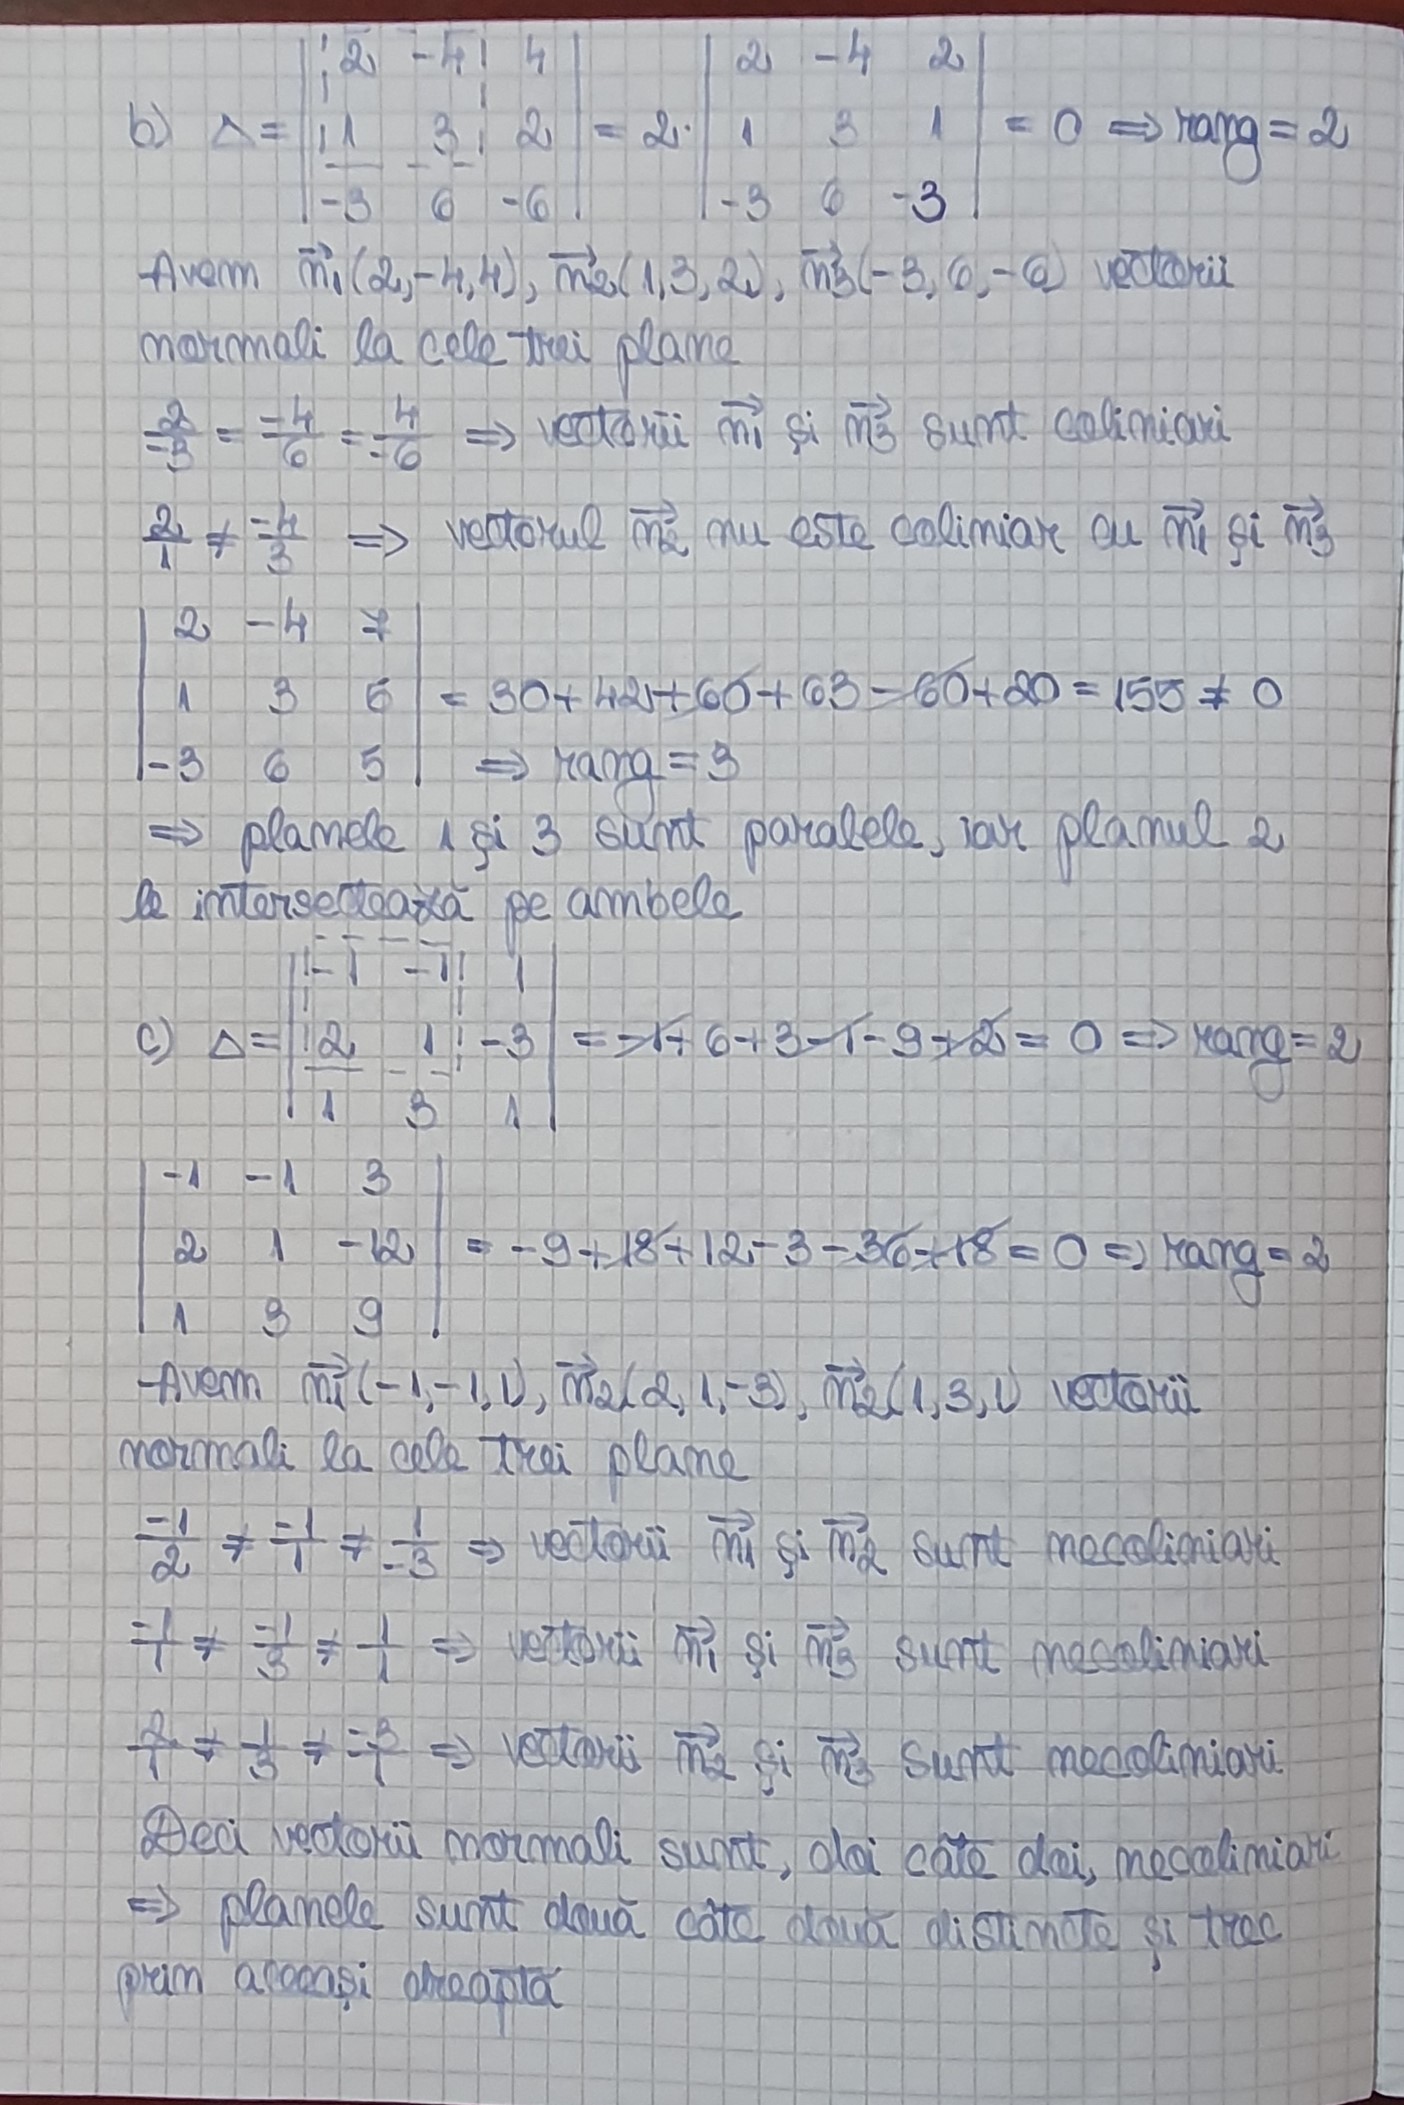 2 -4 4 2 -4 2
b) Δ = 1 3 2 = 2· 1 3 1 = 0 => rang = 2
-3 6 -6 -3 6 -3
Avem n1(2,-4,4), n2(1,3,2), n3(-3,6,-6) vectorii
normali la cele trei plane
2/-3 = -4/6 = 4/-6 => vectorii n1 și n3 sunt coliniari
2/1 ≠ -4/3 => vectorul n2 nu este coliniar cu n1 și n3
2 -4 7
1 3 5 = 30+42+60+63-60+20 = 155 ≠ 0
-3 6 5 => rang = 3
=> planele 1 și 3 sunt paralele, iar planul 2
le intersectează pe ambele
-1 -1 1
c) Δ = 2 1 -3 = -1+6+3-1-9+2 = 0 => rang = 2
1 3 1
-1 -1 3
2 1 -12 = -9+18+12-3-36+18 = 0 => rang = 2
1 3 9
Avem n1(-1,-1,1), n2(2,1,-3), n2(1,3,1) vectorii
normali la cele trei plane
-1/2 ≠ -1/1 ≠ 1/-3 => vectorii n1 și n2 sunt necoliniari
-1/1 ≠ -1/3 ≠ 1/1 => vectorii n1 și n3 sunt necoliniari
2/1 ≠ 1/3 ≠ -3/1 => vectorii n2 și n3 sunt necoliniari
Deci vectorii normali sunt, doi câte doi, necoliniari
=> planele sunt două câte două distincte și trec
prin aceeași dreaptă